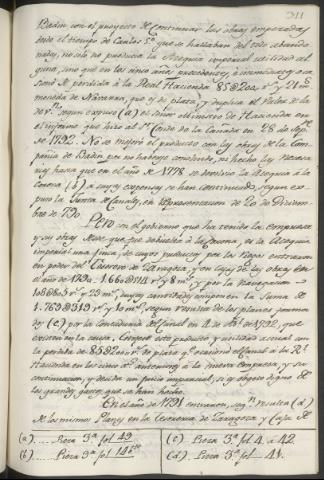 311
Badin con el proyecto de continuar las obras empezadas
desde el tiempo de Carlos 5º que se hallaban del todo abando-
nadas, no solo no producia la Acequia imperial utilidad al
guna, sino que en los cinco años precedentes, e inmediatos oca
sionó de perdida a la Real Hacienda 85@202 rˢ y 21 mˢ
moneda de Navarra, que es de plata, y duplica el valor de la
de vⁿ segun expuso (a) el Señor Ministro de Hacienda en
el informe que hizo al Sʳ Conde de la Cañada en 28 de Sepʳᵉ
de 1792. No se mejoró el producto con las obras de la Com-
pañia de Badin por no haberse concluido, ni hecho las necesa
rias hasta que en el año de 1778 se devolvio la Acequia a la
Corona (b) a cuyas expensas se han continuado, segun ex-
puso la Junta de Canales, en representacion de 20 de Diciem-
bre de 790.
Pero con el gobierno que ha tenido la empresa
y sus obras desde que se devolvió a la Corona, es la Acequia
imperial una finca, de cuyos productos por los riegos entraron
en poder del Tesorero de Zaragoza, y en cajas de las obras en
el año de 1790 1.660@514 rˢ y 8 mˢ y por la navegacion
108@805 rˢ y 23 mˢ, cuyas cantidades componen la suma de
1.769@319 rˢ y 10 mˢ segun resulta de los planes forma
dos (c) por la Contaduria del Canal en 4 de Abˡ de 1792, que
existen en la causa. Compare este producto y utilidad actual con
la perdida de 85@200 rˢ de plata qᵉ ocasionó el Canal a la Rˡ
Hacienda en los cinco aˢ anteriores a la nueva Empresa, y su
continuacion, y decida un juicio imparcial, si es objeto digno de
los grandes gastos que se han hecho.
En el año de 1791 entraron, segⁿ resulta (d)
de los mismos Planes en la Tesoreria de Zaragoza y Caja de
(a) .... Pieza 3ª fol. 49
(b) .... Pieza 9ª fol. 146
(c) .. Pieza 3ª fol. 4. á 42.
(d) .. Pieza 3ª fol. 41.